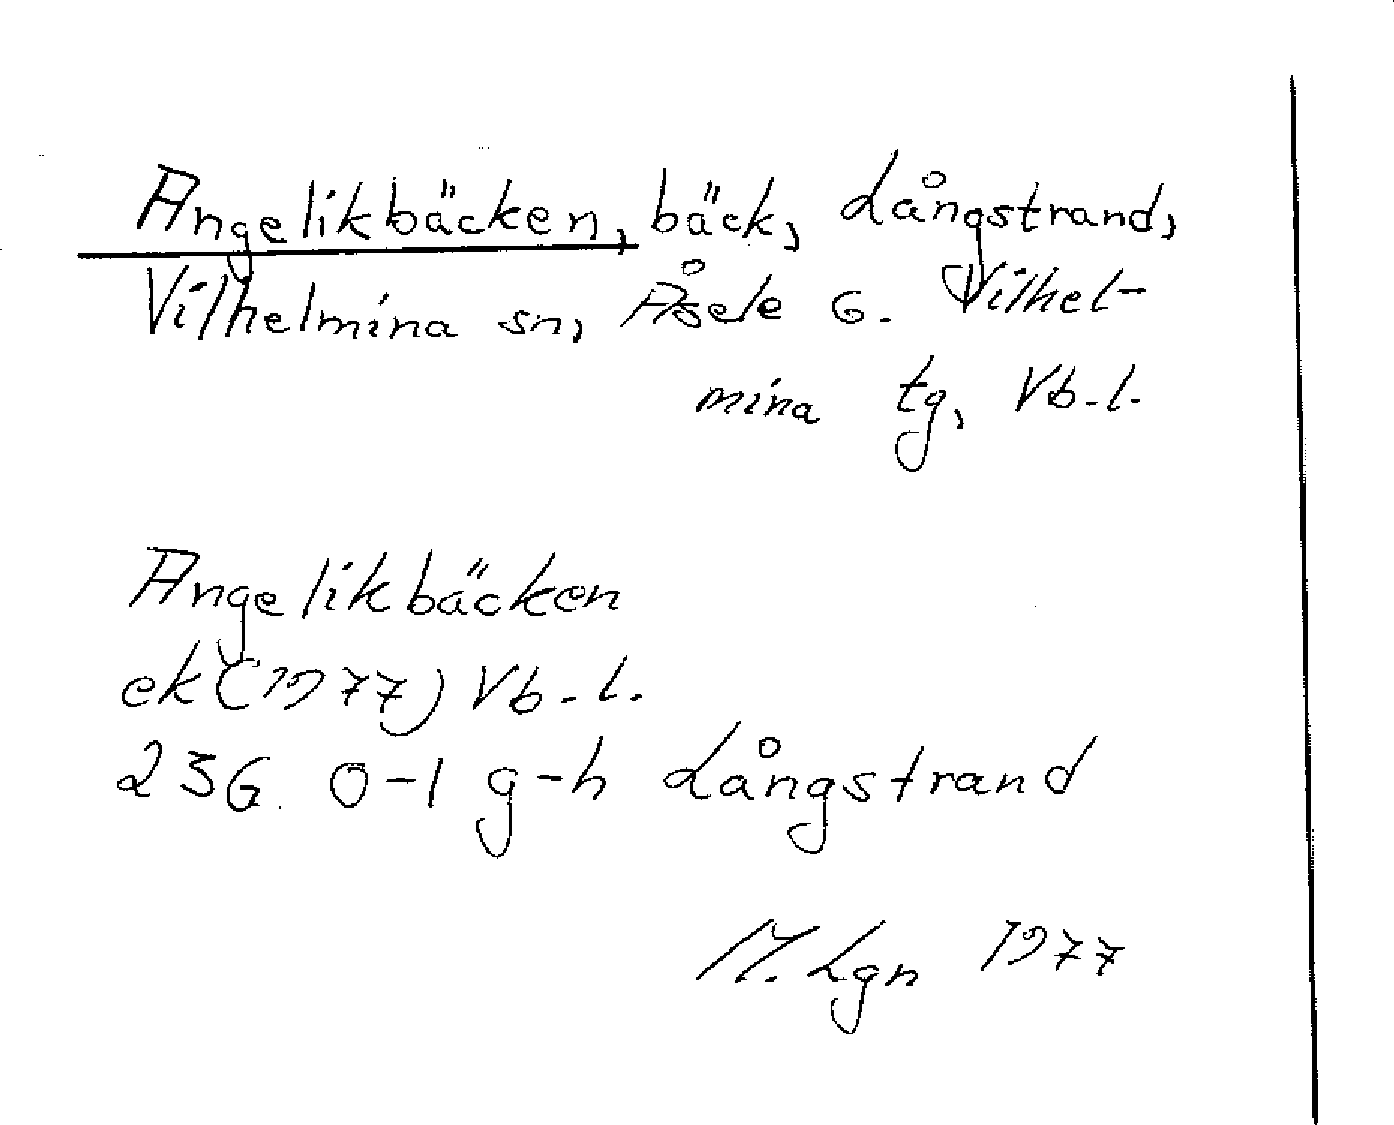 Angelikbäcken, bäck, Långstrand,
Vilhelmina sn, Åsele G. Vilhel-
mina tg, Vb-l.
Angelikbäcken
ek (1977) Vb-l.
23G. 0-1 g-h Långstrand
M. Lgn 1977